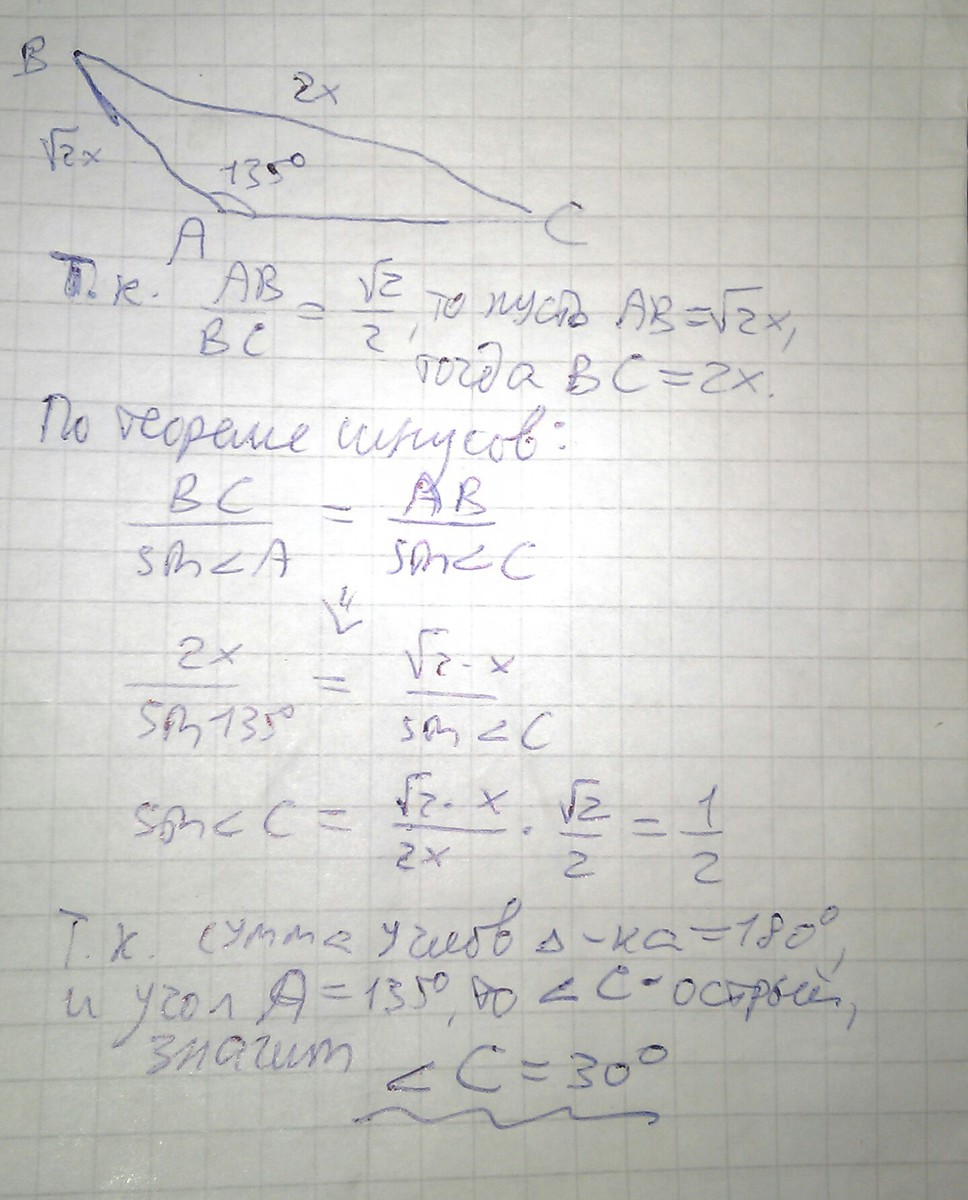 B
2x
√2x
135°
A
C
Т.к. AB/BC = √2/2, то пусть AB=√2x,
тогда BC=2x.
По теореме синусов:
BC/sin<A = AB/sin<C
⇓
2x/sin135° = √2·x/sin<C
sin<C = √2·x/2x · √2/2 = 1/2
Т.к. сумма углов Δ-ка=180°,
и угол A=135°, то <C-острый,
значит
<C=30°